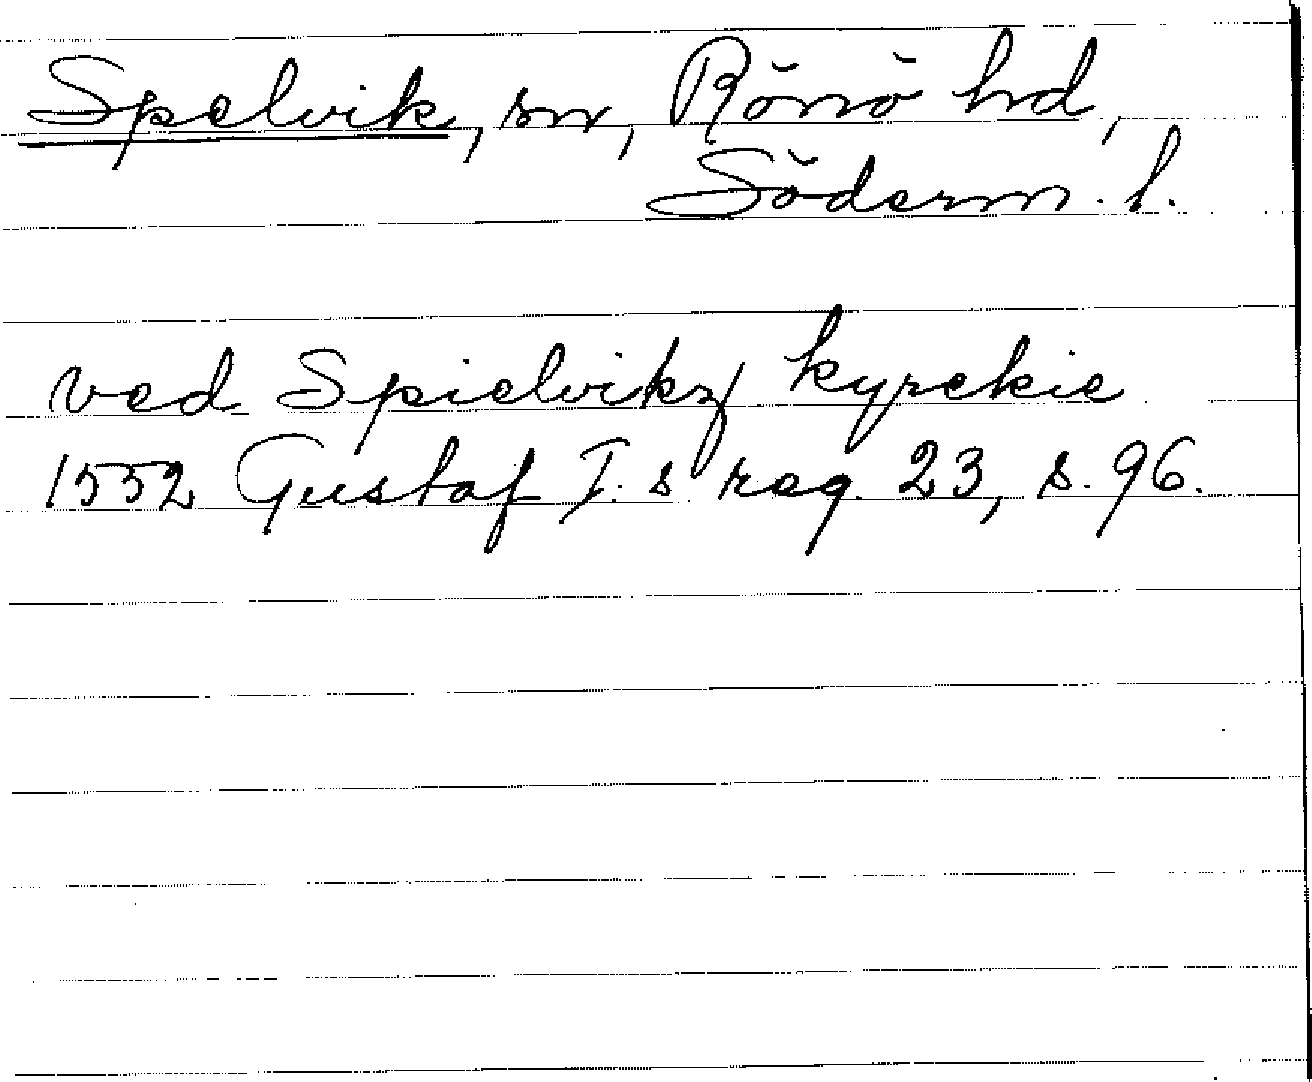 Spelvik, sn, Rönö hd,
Söderm. l.
ved Spielvikz kyrckie
1552 Gustaf I. s reg. 23, s. 96.